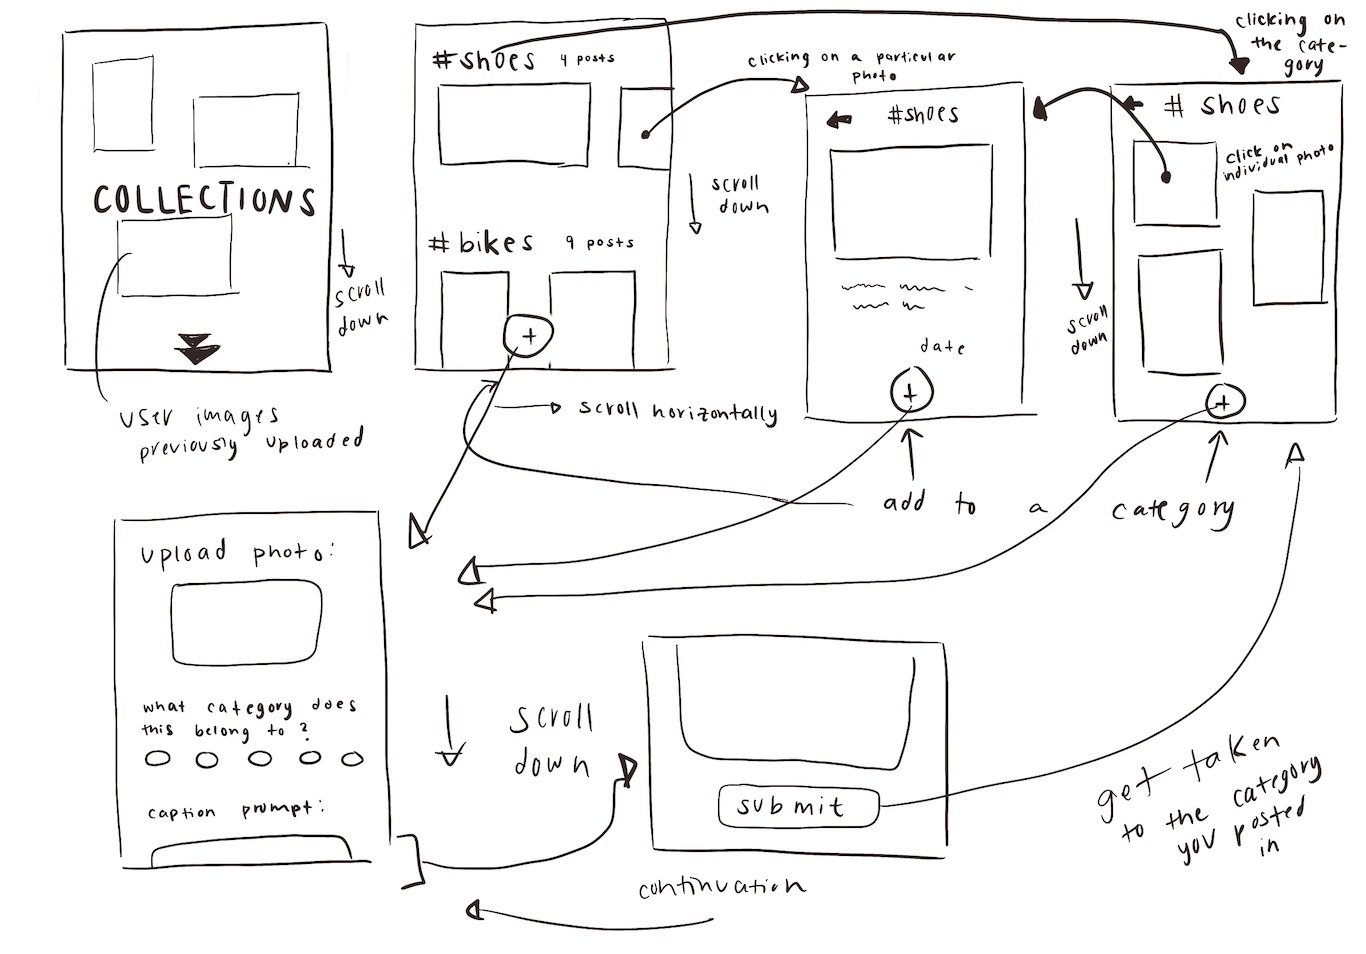 COLLECTIONS
scroll
down
user images
previously uploaded
#shoes 4 posts
#bikes 9 posts
+
scroll horizontally
scroll
down
clicking on a particular
photo
#shoes
date
+
clicking on
the cate-
gory
# shoes
click on
individual photo
scroll
down
+
add to a category
upload photo:
what category does
this belong to?
caption prompt:
scroll
down
submit
continuation
get taken
to the category
you posted
in